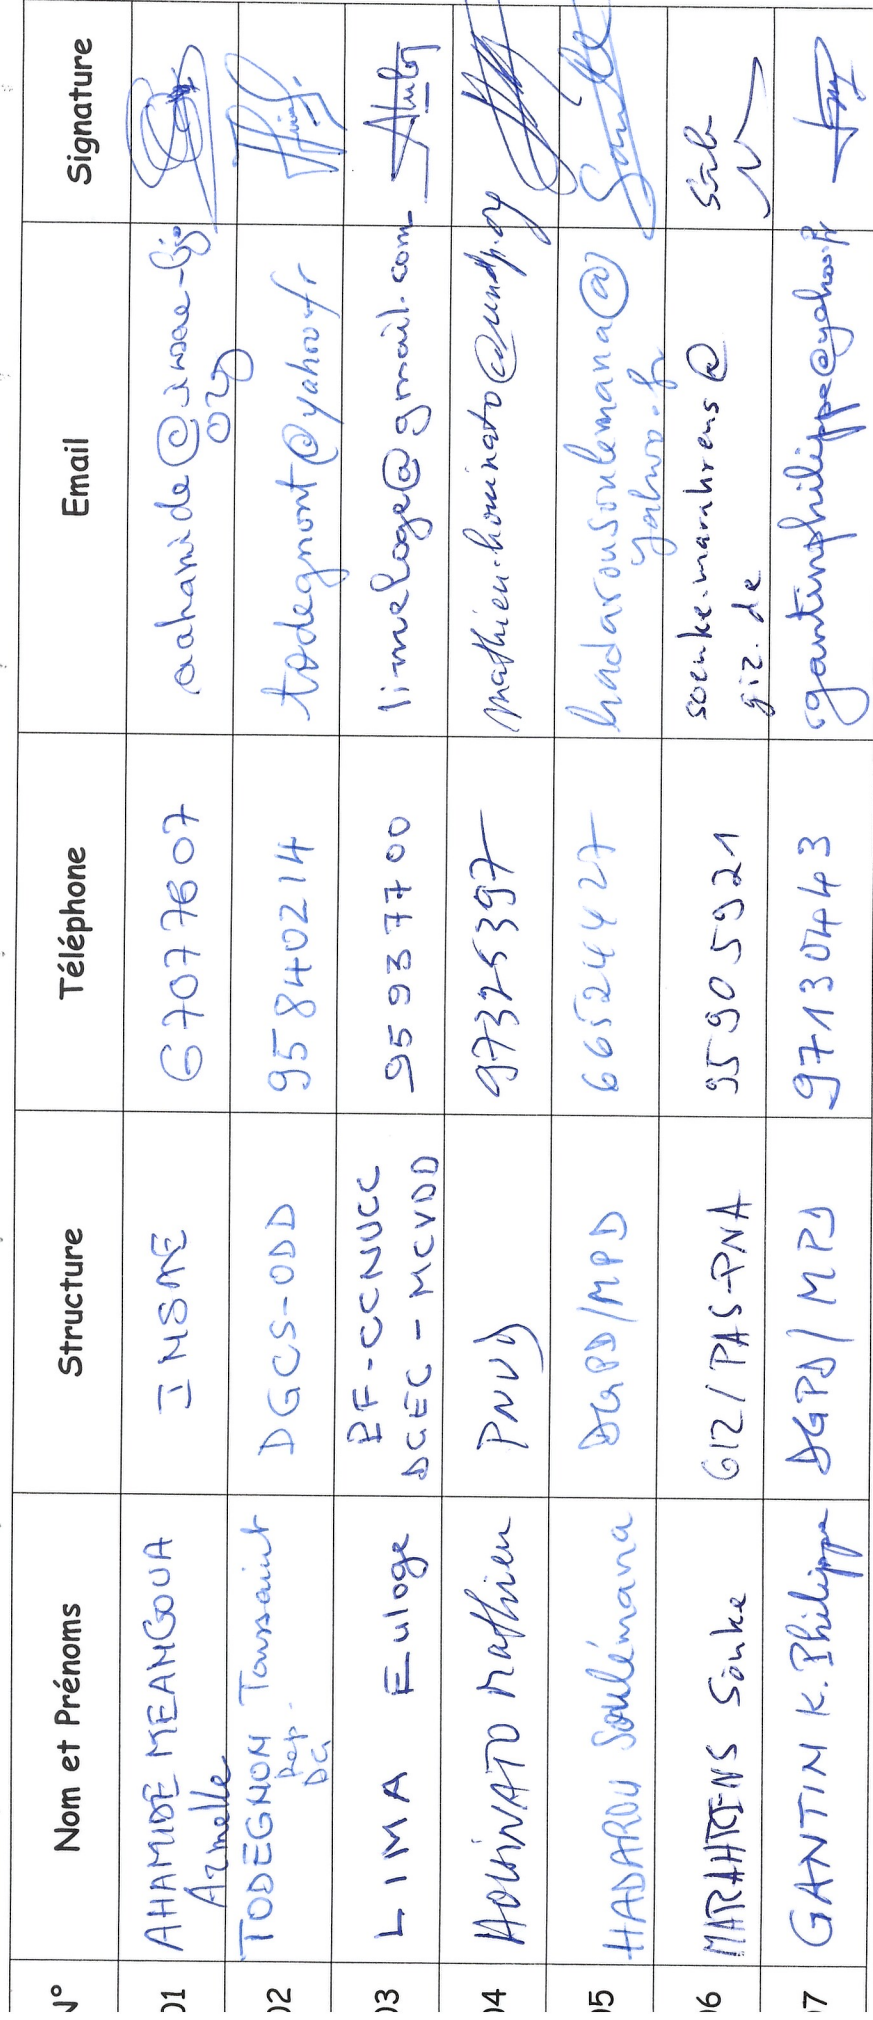 N° Nom et Prénoms Structure Téléphone Email Signature
01 AHAMIDE MEANGOUA Armelle INSAE 67077607 aahamide@insae-bj.org
02 TODEGNON Toussaint Rep. DG DGCS-ODD 95840214 todegnont@yahoo.fr
03 LIMA Euloge PF-CCNUCC DGEC-MCVDD 95937700 limeloge@gmail.com
04 HOUINATO Mathieu PNUD 97325397 mathieu.houinato@undp.org
05 HADAROU Soulémana DGPD/MPD 66524427 hadarousoulemana@yahoo.fr
06 MARAHRENS Sönke GIZ/PAS-PNA 95905921 soenke.marahrens@giz.de
07 GANTIN K. Philippe DGPD/MPD 97130443 gantinphilippe@yahoo.fr